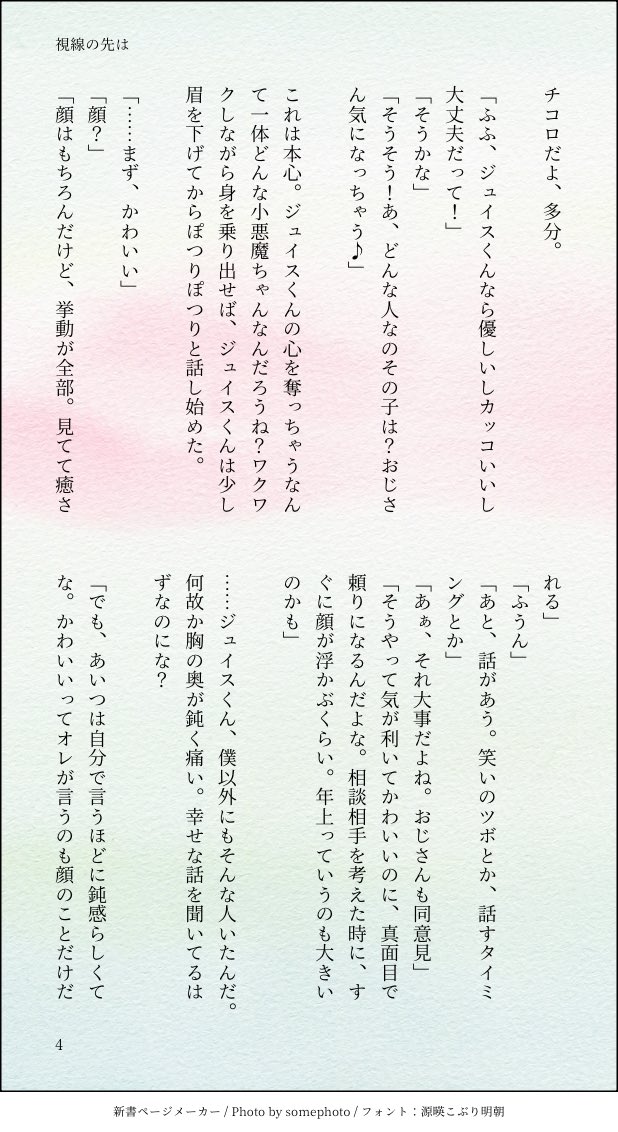 視線の先は
チコロだよ、多分。
「ふふ、ジュイスくんなら優しいしカッコいいし
大丈夫だって！」
「そうかな」
「そうそう！あ、どんな人なのその子は？おじさ
ん気になっちゃう♪」
これは本心。ジュイスくんの心を奪っちゃうなん
て一体どんな小悪魔ちゃんなんだろうね？ワクワ
クしながら身を乗り出せば、ジュイスくんは少し
眉を下げてからぽつりぽつりと話し始めた。
「……まず、かわいい」
「顔？」
「顔はもちろんだけど、挙動が全部。見てて癒さ
れる」
「ふうん」
「あと、話があう。笑いのツボとか、話すタイミ
ングとか」
「あぁ、それ大事だよね。おじさんも同意見」
「そうやって気が利いてかわいいのに、真面目で
頼りになるんだよな。相談相手を考えた時に、す
ぐに顔が浮かぶくらい。年上っていうのも大きい
のかも」
……ジュイスくん、僕以外にもそんな人いたんだ。
何故か胸の奥が鈍く痛い。幸せな話を聞いてるは
ずなのにな？
「でも、あいつは自分で言うほどに鈍感らしくて
な。かわいいってオレが言うのも顔のことだけだ
4
新書ページメーカー / Photo by somephoto / フォント：源暎こぶり明朝